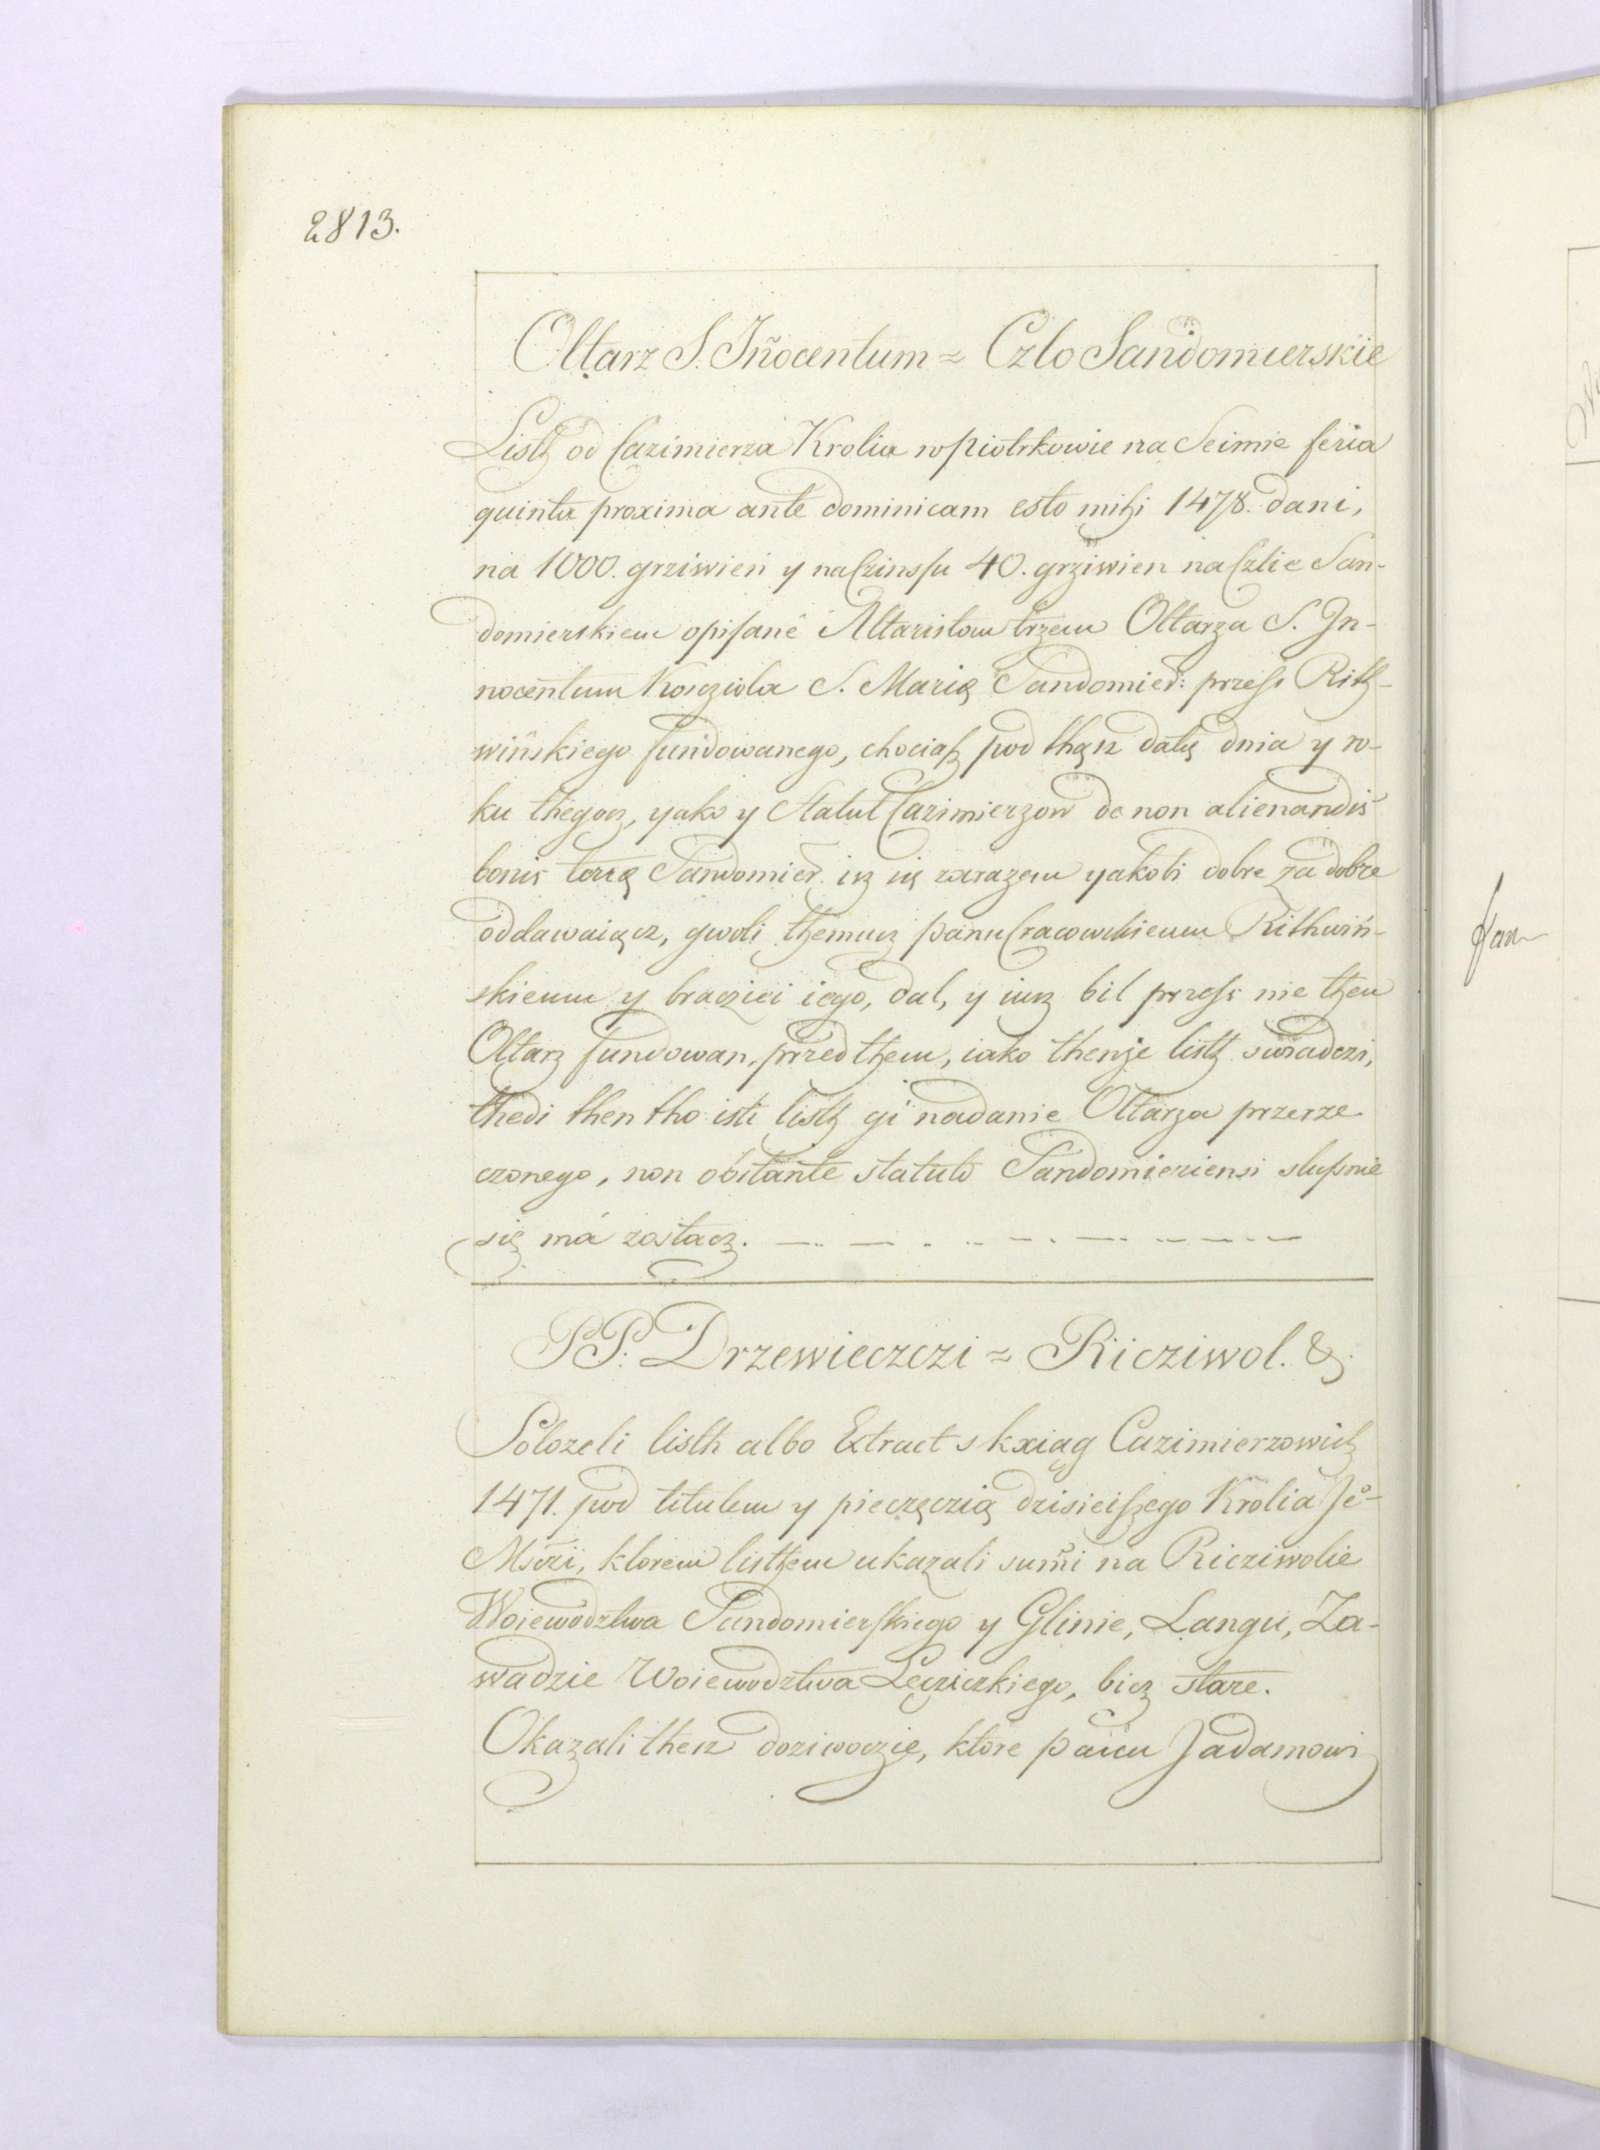 2813.
Ołtarz S. Iñocentum = Czlo Sandomierskie
Listh od Cazimierza Krolia w Piotrkowie na Seimie feria
quinta proxima ante dominicam esto mihi 1478. dani,
na 1000. grziwien y na Czinssu 40. grziwien na Czlie San-
domierskiem opisane Altaristom trzem Ołtarza S. In-
nocentum Kosczioła S. Marię Sandomier: przess Rith-
wińskiego fundowanego, chociasz pod thąsz datą dnia y ro-
ku thegosz, yako y Statut Cazimierzow de non alienandis
bonis Sandomier. isz się zarazem yakobi dobre za dobre
oddawaiącz, gwoli themusz panu Cracowskiemu Rithwiń-
skiemu y bracziei iego, dal, y iusz bil przess nie then
Ołtarz fundowan, przed them, iako thenże listh swiadczi,
thedi then tho isti listh gi nadanie Ołtarza przerze
czonego, non obstante statuto Sandomieriensi slusznie
się má zostacz.
PP. Drzewieczczi = Ricziwol. &
Polozeli listh albo Extract s kxiąg Cazimierzowich
1471. pod titulem y pieczęczią dzisieiszego Krolia Je°
Msczi, ktorem listhem ukazali sum̃i na Ricziwolie
Woiewodztwa Sandomierskiego y Glinie, Langu, Za-
wadzie Woiewodztwa Lęcziczkiego, bicz stare.
Okazali thesz doziwoczie, ktore panu Jadamowi